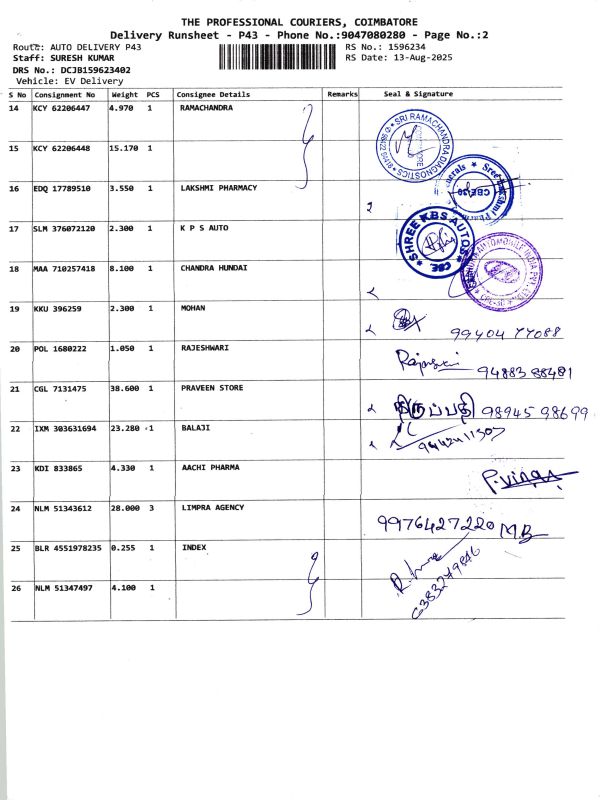 THE PROFESSIONAL COURIERS, COIMBATORE
Delivery Runsheet - P43 - Phone No.:9047080280 - Page No.:2
Route: AUTO DELIVERY P43 RS No.: 1596234
Staff: SURESH KUMAR RS Date: 13-Aug-2025
DRS No.: DCJB159623402
Vehicle: EV Delivery
S No Consignment No Weight PCS Consignee Details Remarks Seal & Signature
14 KCY 62206447 4.970 1 RAMACHANDRA
SRI RAMACHANDRA DIAGNOSTICS
15 KCY 62206448 15.170 1
16 EDQ 17789510 3.550 1 LAKSHMI PHARMACY
CBE-30
17 SLM 376072120 2.300 1 K P S AUTO
SHREE KBS AUTOS
CBE.
18 MAA 710257418 8.100 1 CHANDRA HUNDAI
CBE-30
19 KKU 396259 2.300 1 MOHAN
99404 77088
20 POL 1680222 1.050 1 RAJESHWARI
94883 88481
21 CGL 7131475 38.600 1 PRAVEEN STORE
திருப்பதி 98945 98699
22 IXM 303631694 23.280 1 BALAJI
9442411507
23 KDI 833865 4.330 1 AACHI PHARMA
24 NLM 51343612 28.000 3 LIMPRA AGENCY
9976427220 M.B
25 BLR 4551978235 0.255 1 INDEX
26 NLM 51347497 4.100 1